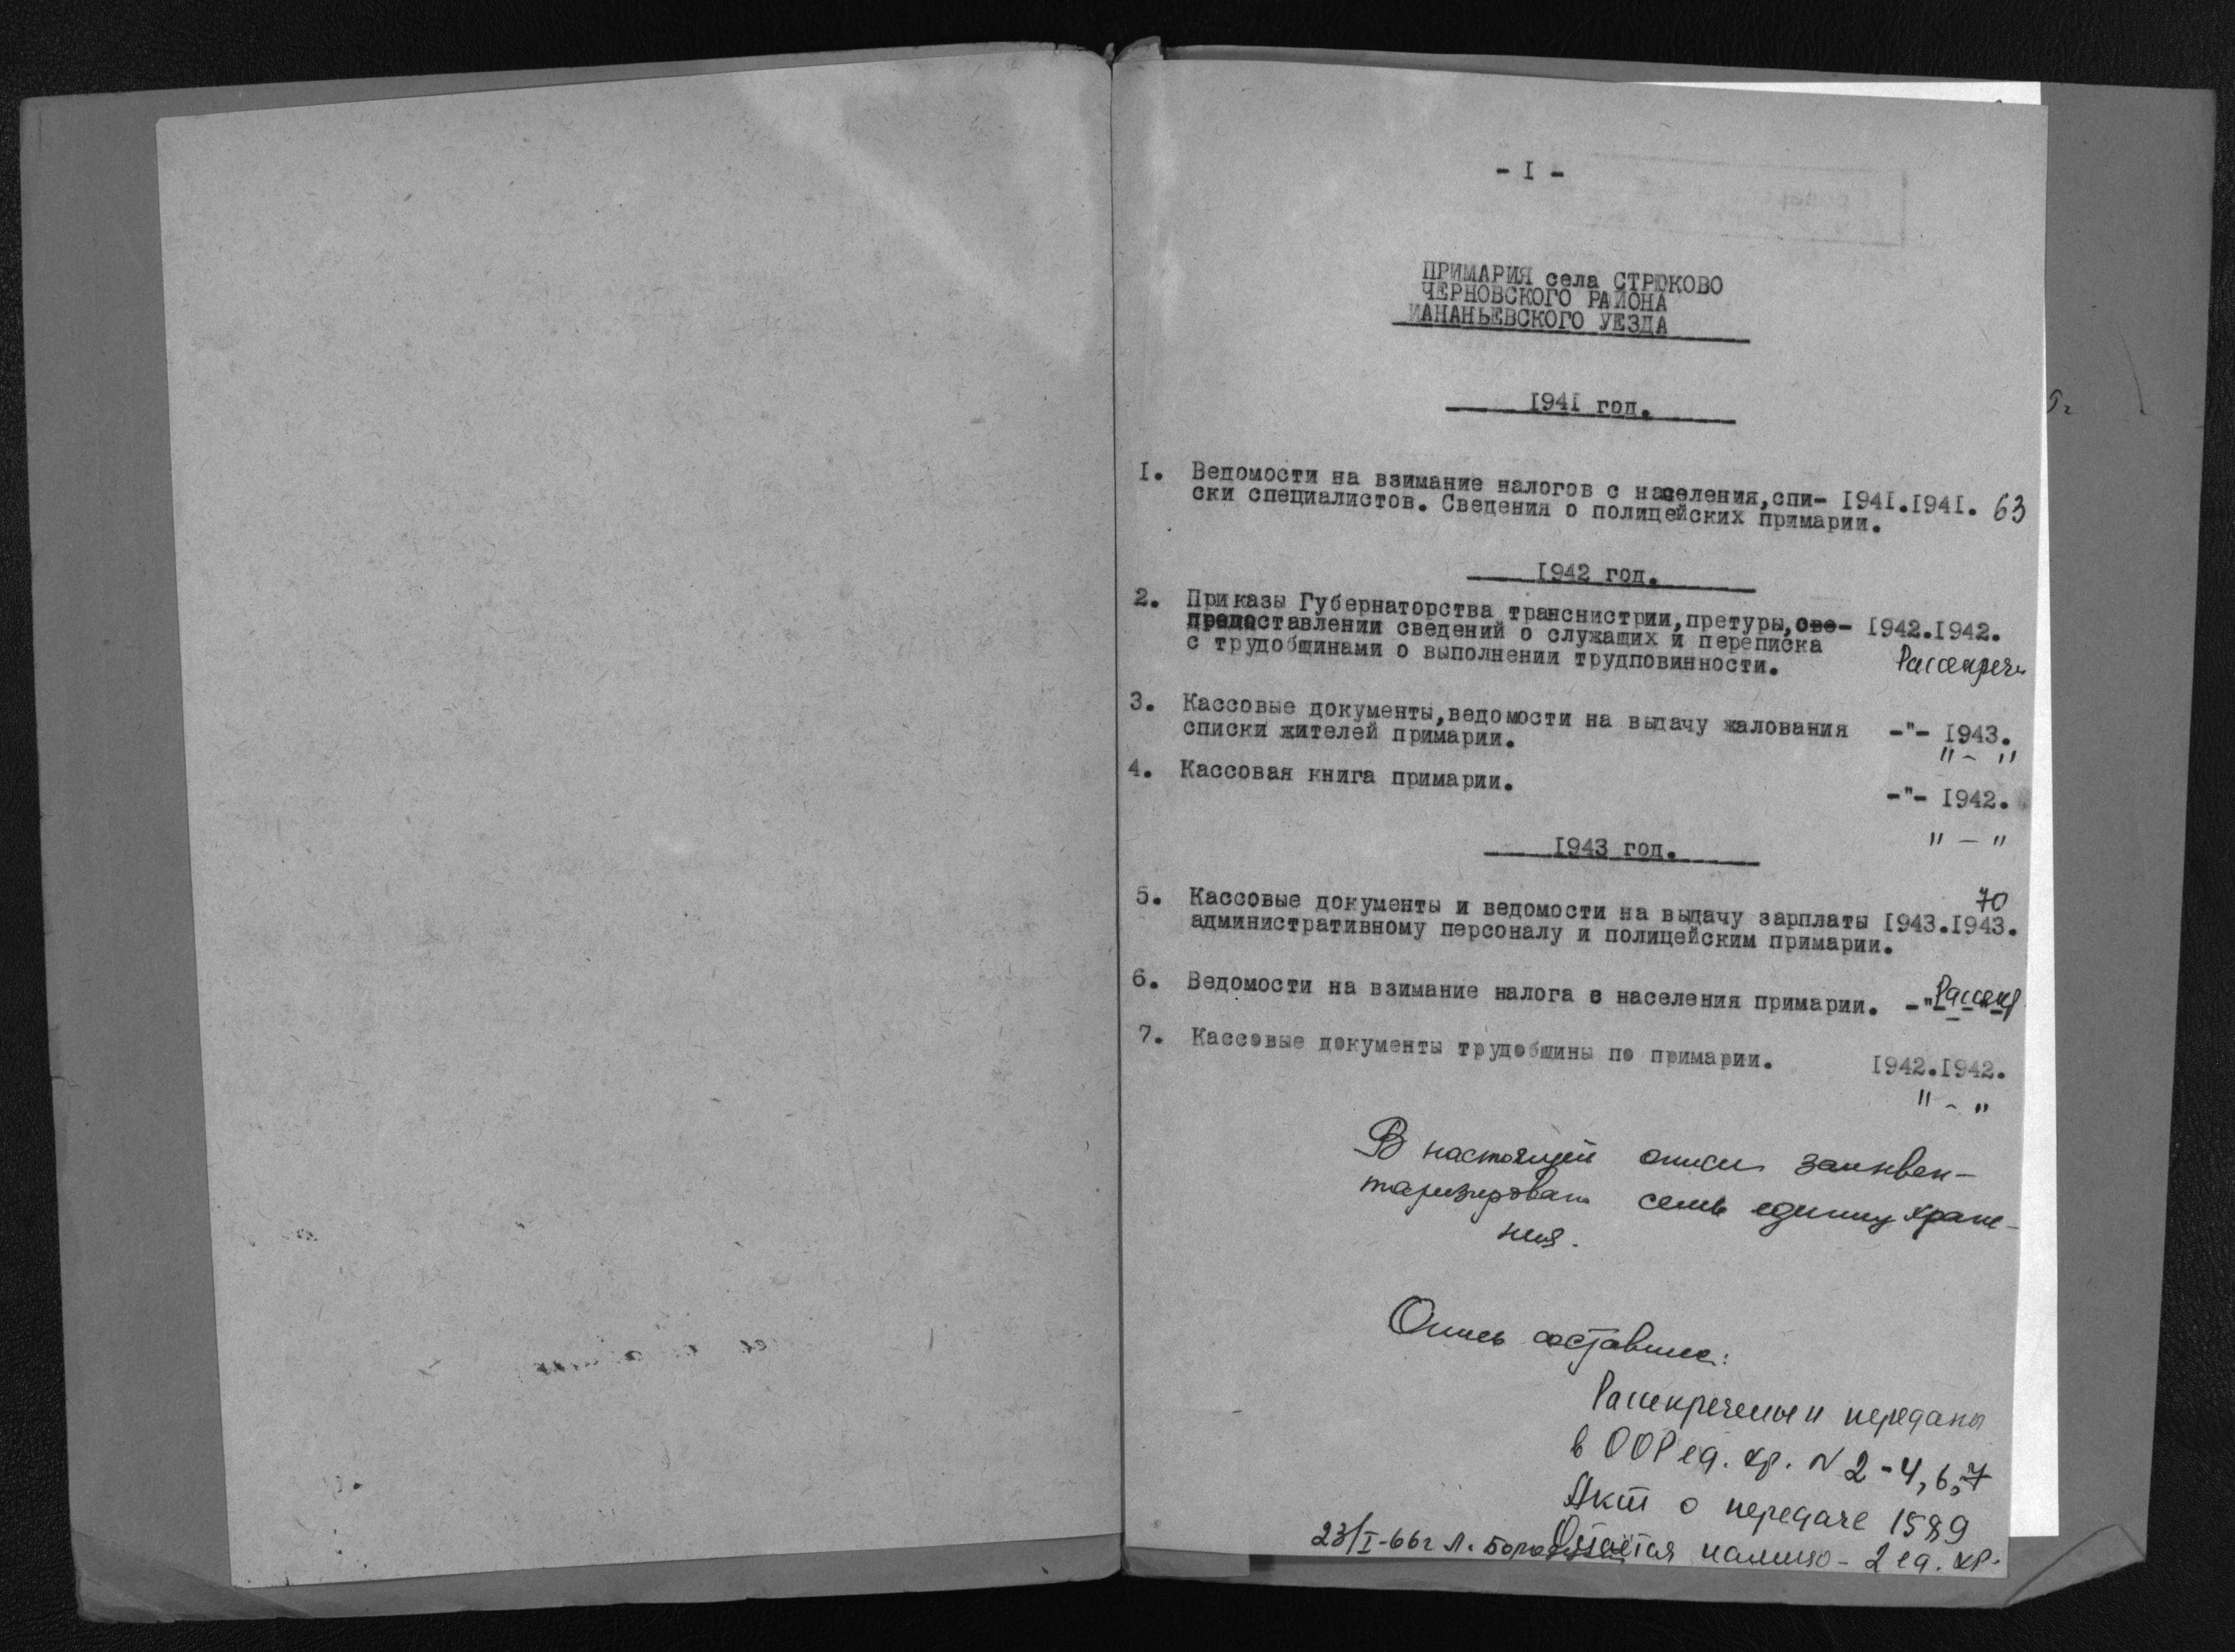 - I -
ПРИМАРИЯ села СТРЮКОВО
ЧЕРНОВСКОГО РАЙОНА
ИАНАНЬЕВСКОГО УЕЗДА
I94I год.
I. Ведомости на взимание налогов с населения,спи- I94I.I94I. 63
ски специалистов. Сведения о полицейских примарии.
I942 год.
2. Приказы Губернаторства транснистрии,претуры,  I942.I942.
предоставлении сведений о служащих и переписка
с трудобщинами о выполнении трудповинности. Рассекречен
3. Кассовые документы,ведомости на выдачу жалования -"- I943.
списки жителей примарии. " - "
4. Кассовая книга примарии.
-"- I942.
" - "
I943 год.
70
5. Кассовые документы и ведомости на выдачу зарплаты I943.I943.
административному персоналу и полицейским примарии.
6. Ведомости на взимание налога с населения примарии. -" Рассекр
7. Кассовые документы трудобщины по примарии. I942.I942.
" - "
В настоящей описи заинвен-
таризировано семь единиц хране-
ния.
Опись составил:
Рассекречены и переданы
в ООР ед. хр. N 2-4, 6,7
Акт о передаче 1989
Остаётся налицо - 2 ед. хр.
23/I-66г Л.